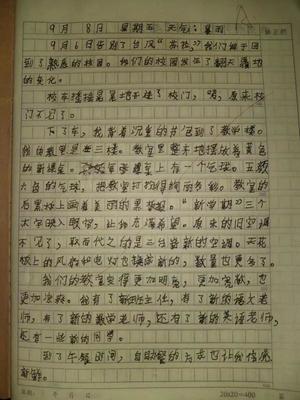 9月 8日 星期五 天气:暴雨
9月6日告别了台风“苏拉”我们终于回
到了熟悉的校园。我们的校园发生了翻天覆地
的变化。
校车摇摇晃晃地开进了校门,咦,原来校
门不见了。
下了车,我背着沉重的书包到了教学楼。
我的教室是三楼。教室里整齐地摆放着黄色
的新课桌。每张课桌上有一个气球。五颜
六色的气球,把教室打扮得绚丽多彩。教室的
后黑板上画着美丽的黑板报。“新学期”三个
大字映入眼帘,让我充满希望。原来的旧空调
不见了,取而代之的是三台崭新的空调。天花
板上的风扇和电灯也换成新的,数量也更多了。
我们的教室变得更加明亮,更加宽敞,也
更加凉爽。我有了新班主任,有了新的语文老
师,有了新的数学老师,还有了新的英语老师,
还有一些新的同学。
到了午餐时间,自助餐的方式也让我倍感
新鲜。
20x20=400